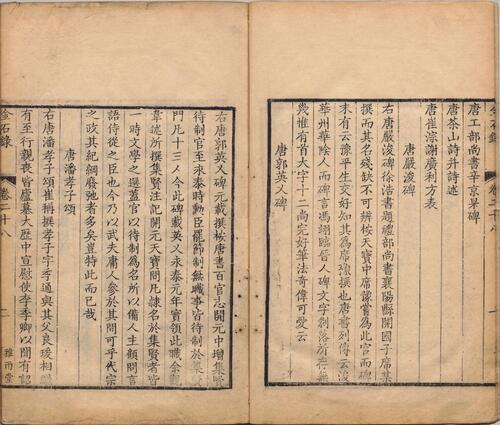 金石錄 卷二十八 一
唐工部尚書辛京杲碑
唐茶山詩并詩述
唐崔淙謝廣利方表
唐嚴浚碑
右唐嚴浚碑徐浩書題禮部尚書襄陽縣開國子席某
撰而其名殘缺不可辨桉天寶中席豫嘗為此官而碑
末有云豫平生交好知其為席豫撰也唐書列傳云浚
華州華陰人而碑言馮翊臨晉人碑文字剝落所存無
幾惟有首大字十二尚完好筆法奇偉可愛云
唐郭英乂碑
右唐郭英乂碑元載撰桉唐書百官志開元中增集賢
待制官至永泰時勳臣罷節制無職事皆待制於集賢
門凡十三人今此碑載英乂永泰元年實領此職余觀
韋述所撰集賢注記開元天寶間凡隷名於集賢者皆
一時文學之選蓋官以待制為名所以備人主顧問言
語侍從之臣也今乃以武夫庸人參於其間可乎代宗
之政其紀綱廢弛者多矣豈特此而已哉
唐潘孝子頌
右唐潘孝子頌崔稱撰孝子字季通與其父良瑗相繼
有至行親喪皆廬墓大歷中宣慰使李季卿以聞有詔
金石錄 卷二十八 二 雅雨堂